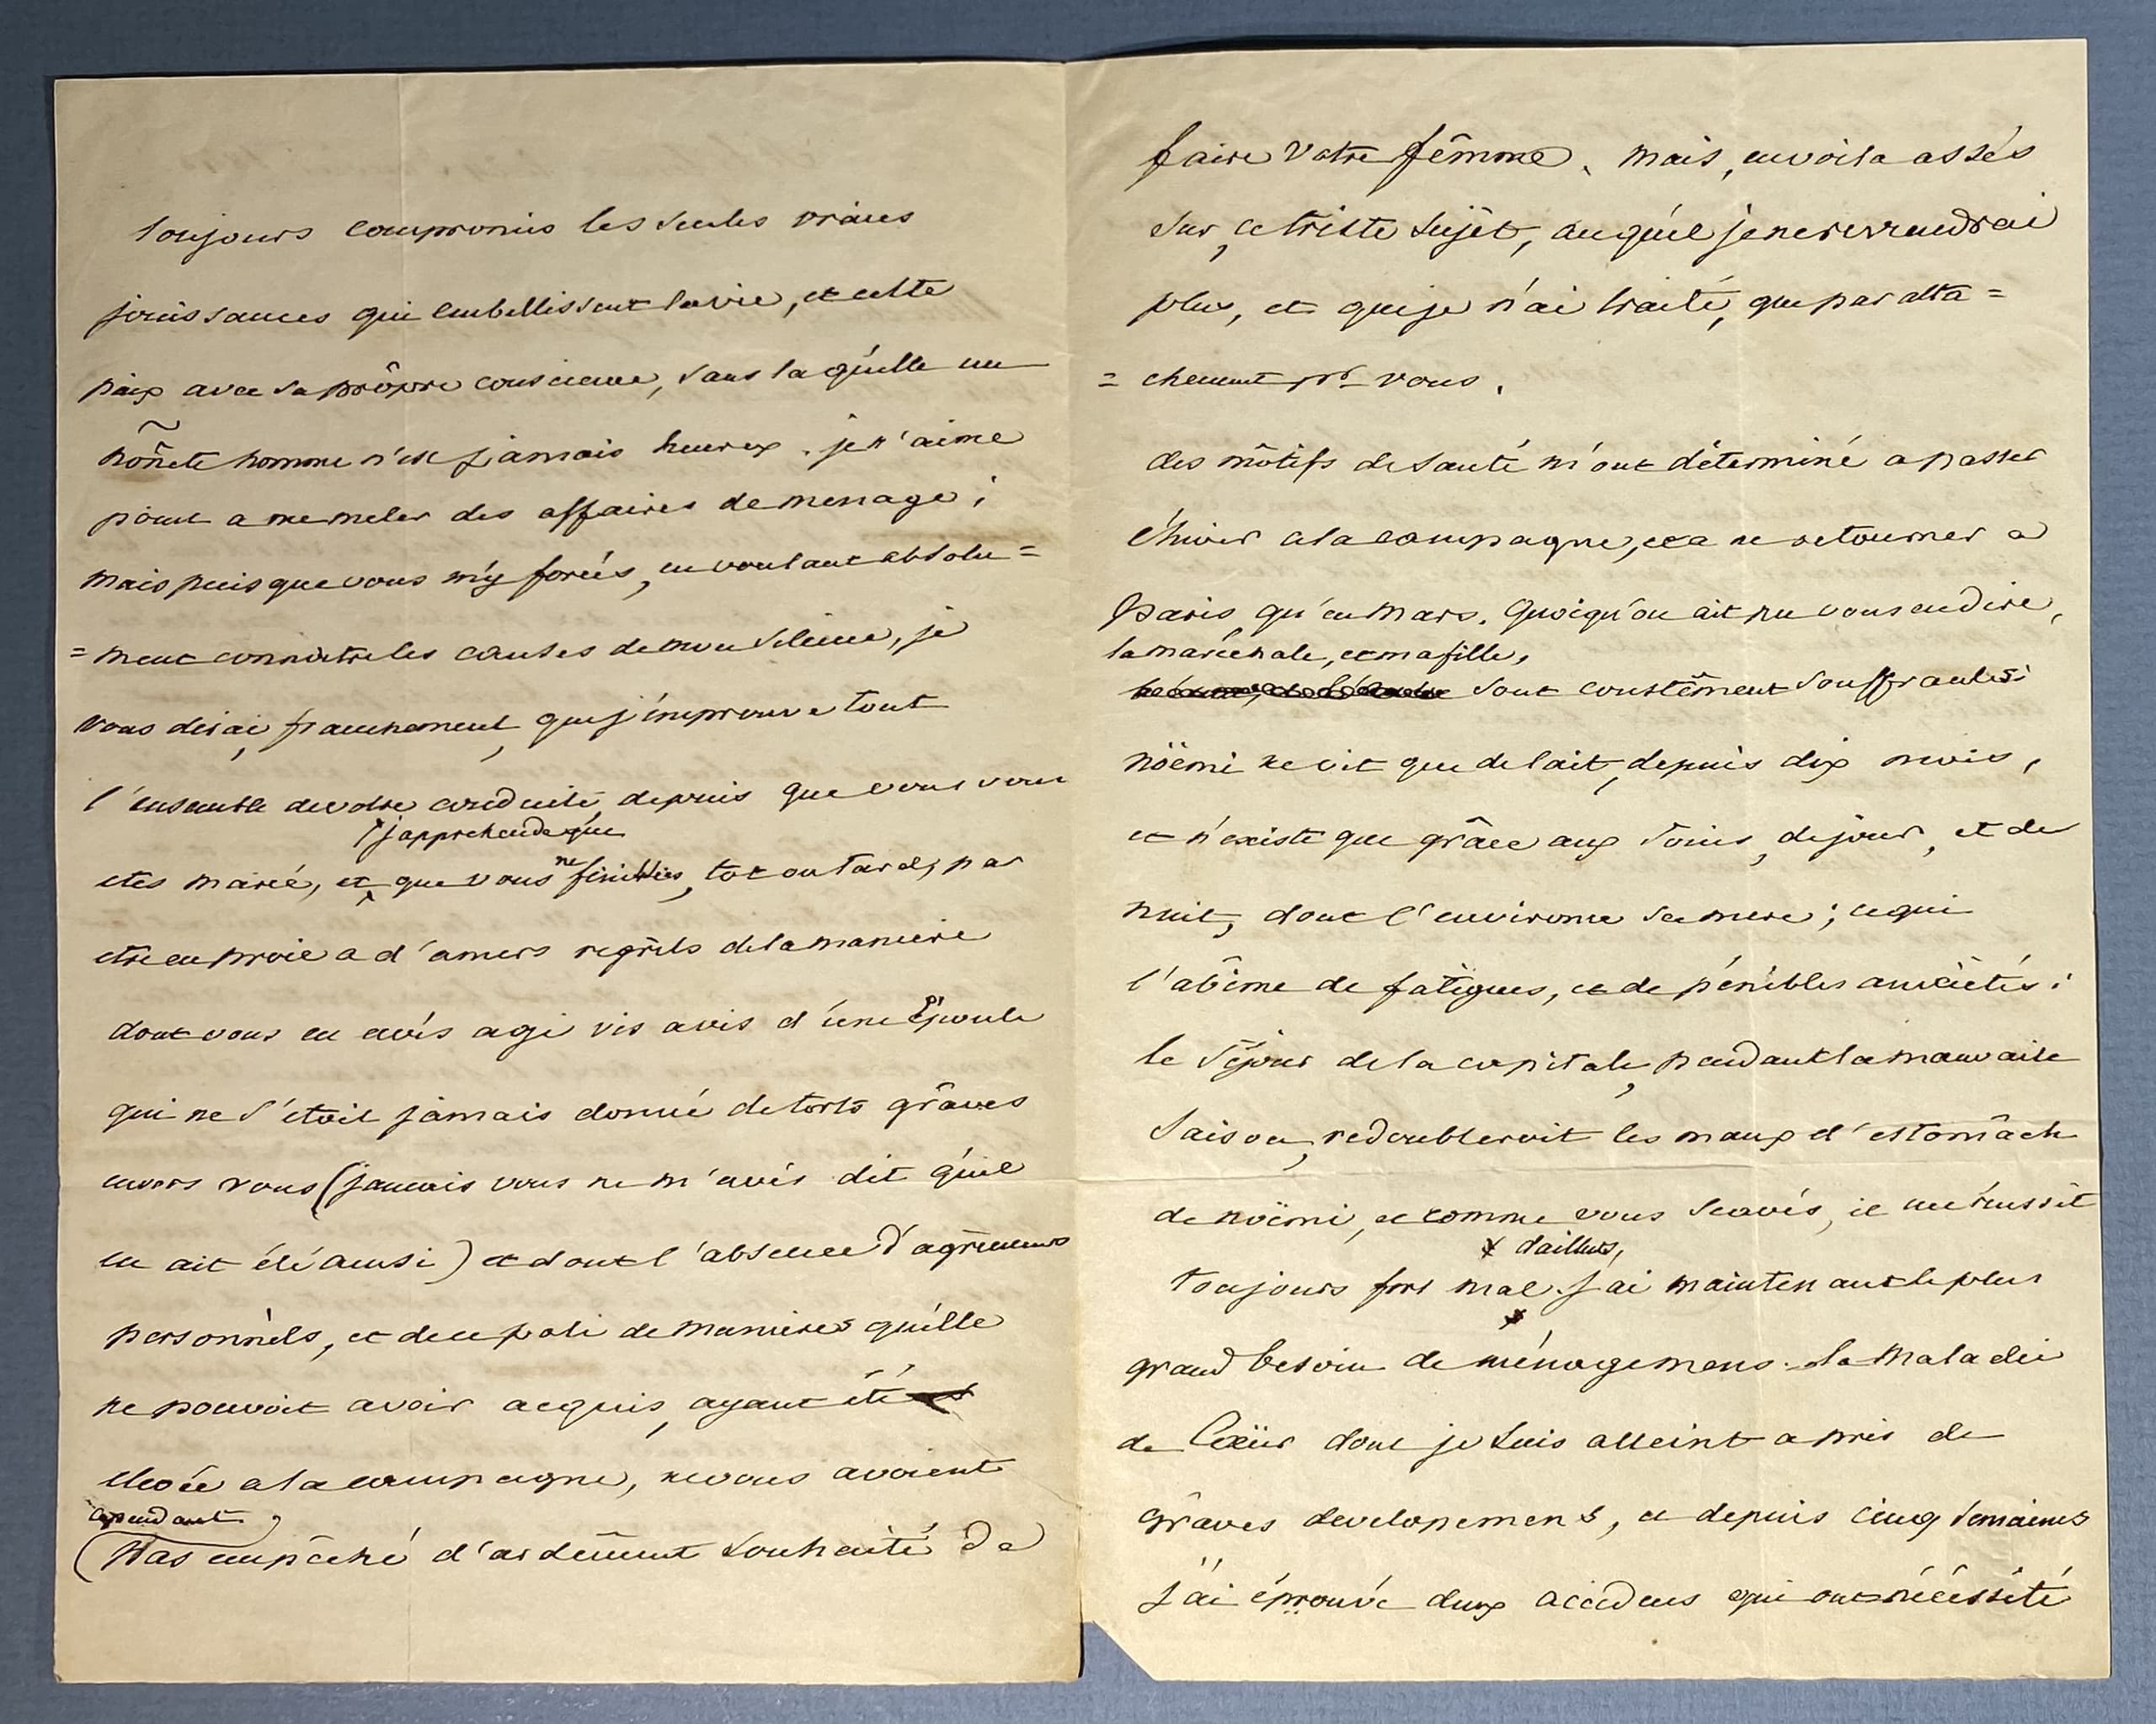 toujours compromis les seules vraies
jouissances qui embellissent la vie, et cette
paix avec sa prôpre conscience, sans laquélle un
hoñete homme n'est jamais heureux. je n'aime
point a me meler des affaires de menage;
mais puisque vous m'y forcés, en voulant absolu=
=ment connoitre les causes de mon silence, je
vous dirai, franchement, que j'improuve tout
l'ensemble de votre conduite, depuis que vous vous
j'apprehende que
etes marié, et que vous ne finissies, tot ou tard, par
etre en proie a d'amers regrêts de la maniere
dont vous en avés agi vis avis d'une Epouse
qui ne s'étoit jamais donné de torts grâves
envers vous (jamais vous ne m'avés dit qu'il
en ait été ainsi) et dont l'absence d'agrémens
personnèls, et de ce poli de manieres qu'élle
ne pouvoit avoir acquis, ayant été
elevée a la campagne, ne vous avoient
cependant
(pas empêché d'ardêment souhaité d'e
faire votre fêmme. mais, en voila assés
sur, ce triste sujèt, au quél je ne reviendrai
plus, et que je n'ai traité, que par atta=
=chement pr vous.
des môtifs de santé m'ont déterminé a passer
l'hiver a la campagne, et a ne retourner a
Paris, qu'en mars. Quoiqu'on ait pu vous en dire,
la maréchale, et ma fille,
sont constâment souffrantes:
nöèmi ne vit que de lait, depuis dix mois,
et n'existe que grâce aux soins, de jour, et de
nuit, dont l'environne sa mere; ce qui
l'abîme de fatigues, et de pénibles anxiétés:
le séjour de la capitale, pendant la mauvaise
saison, redoubleroit les maux d'estomâch
de nöèmi, et comme vous scavés, il me réussit
x dailleurs,
toujours fort mal. J'ai maintenant le plus
x
grand besoin de ménagemens. la maladie
de Coeur dont je suis atteint a pris de
grâves developemens, et depuis cinq semaines
j'ai éprouvé deux accidens qui ont nécéssité